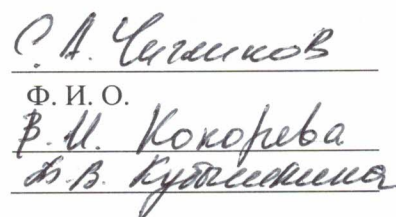 С. А. Чигликов
Ф. И. О.
В. И. Кокорева
Д. В. Кубышкина